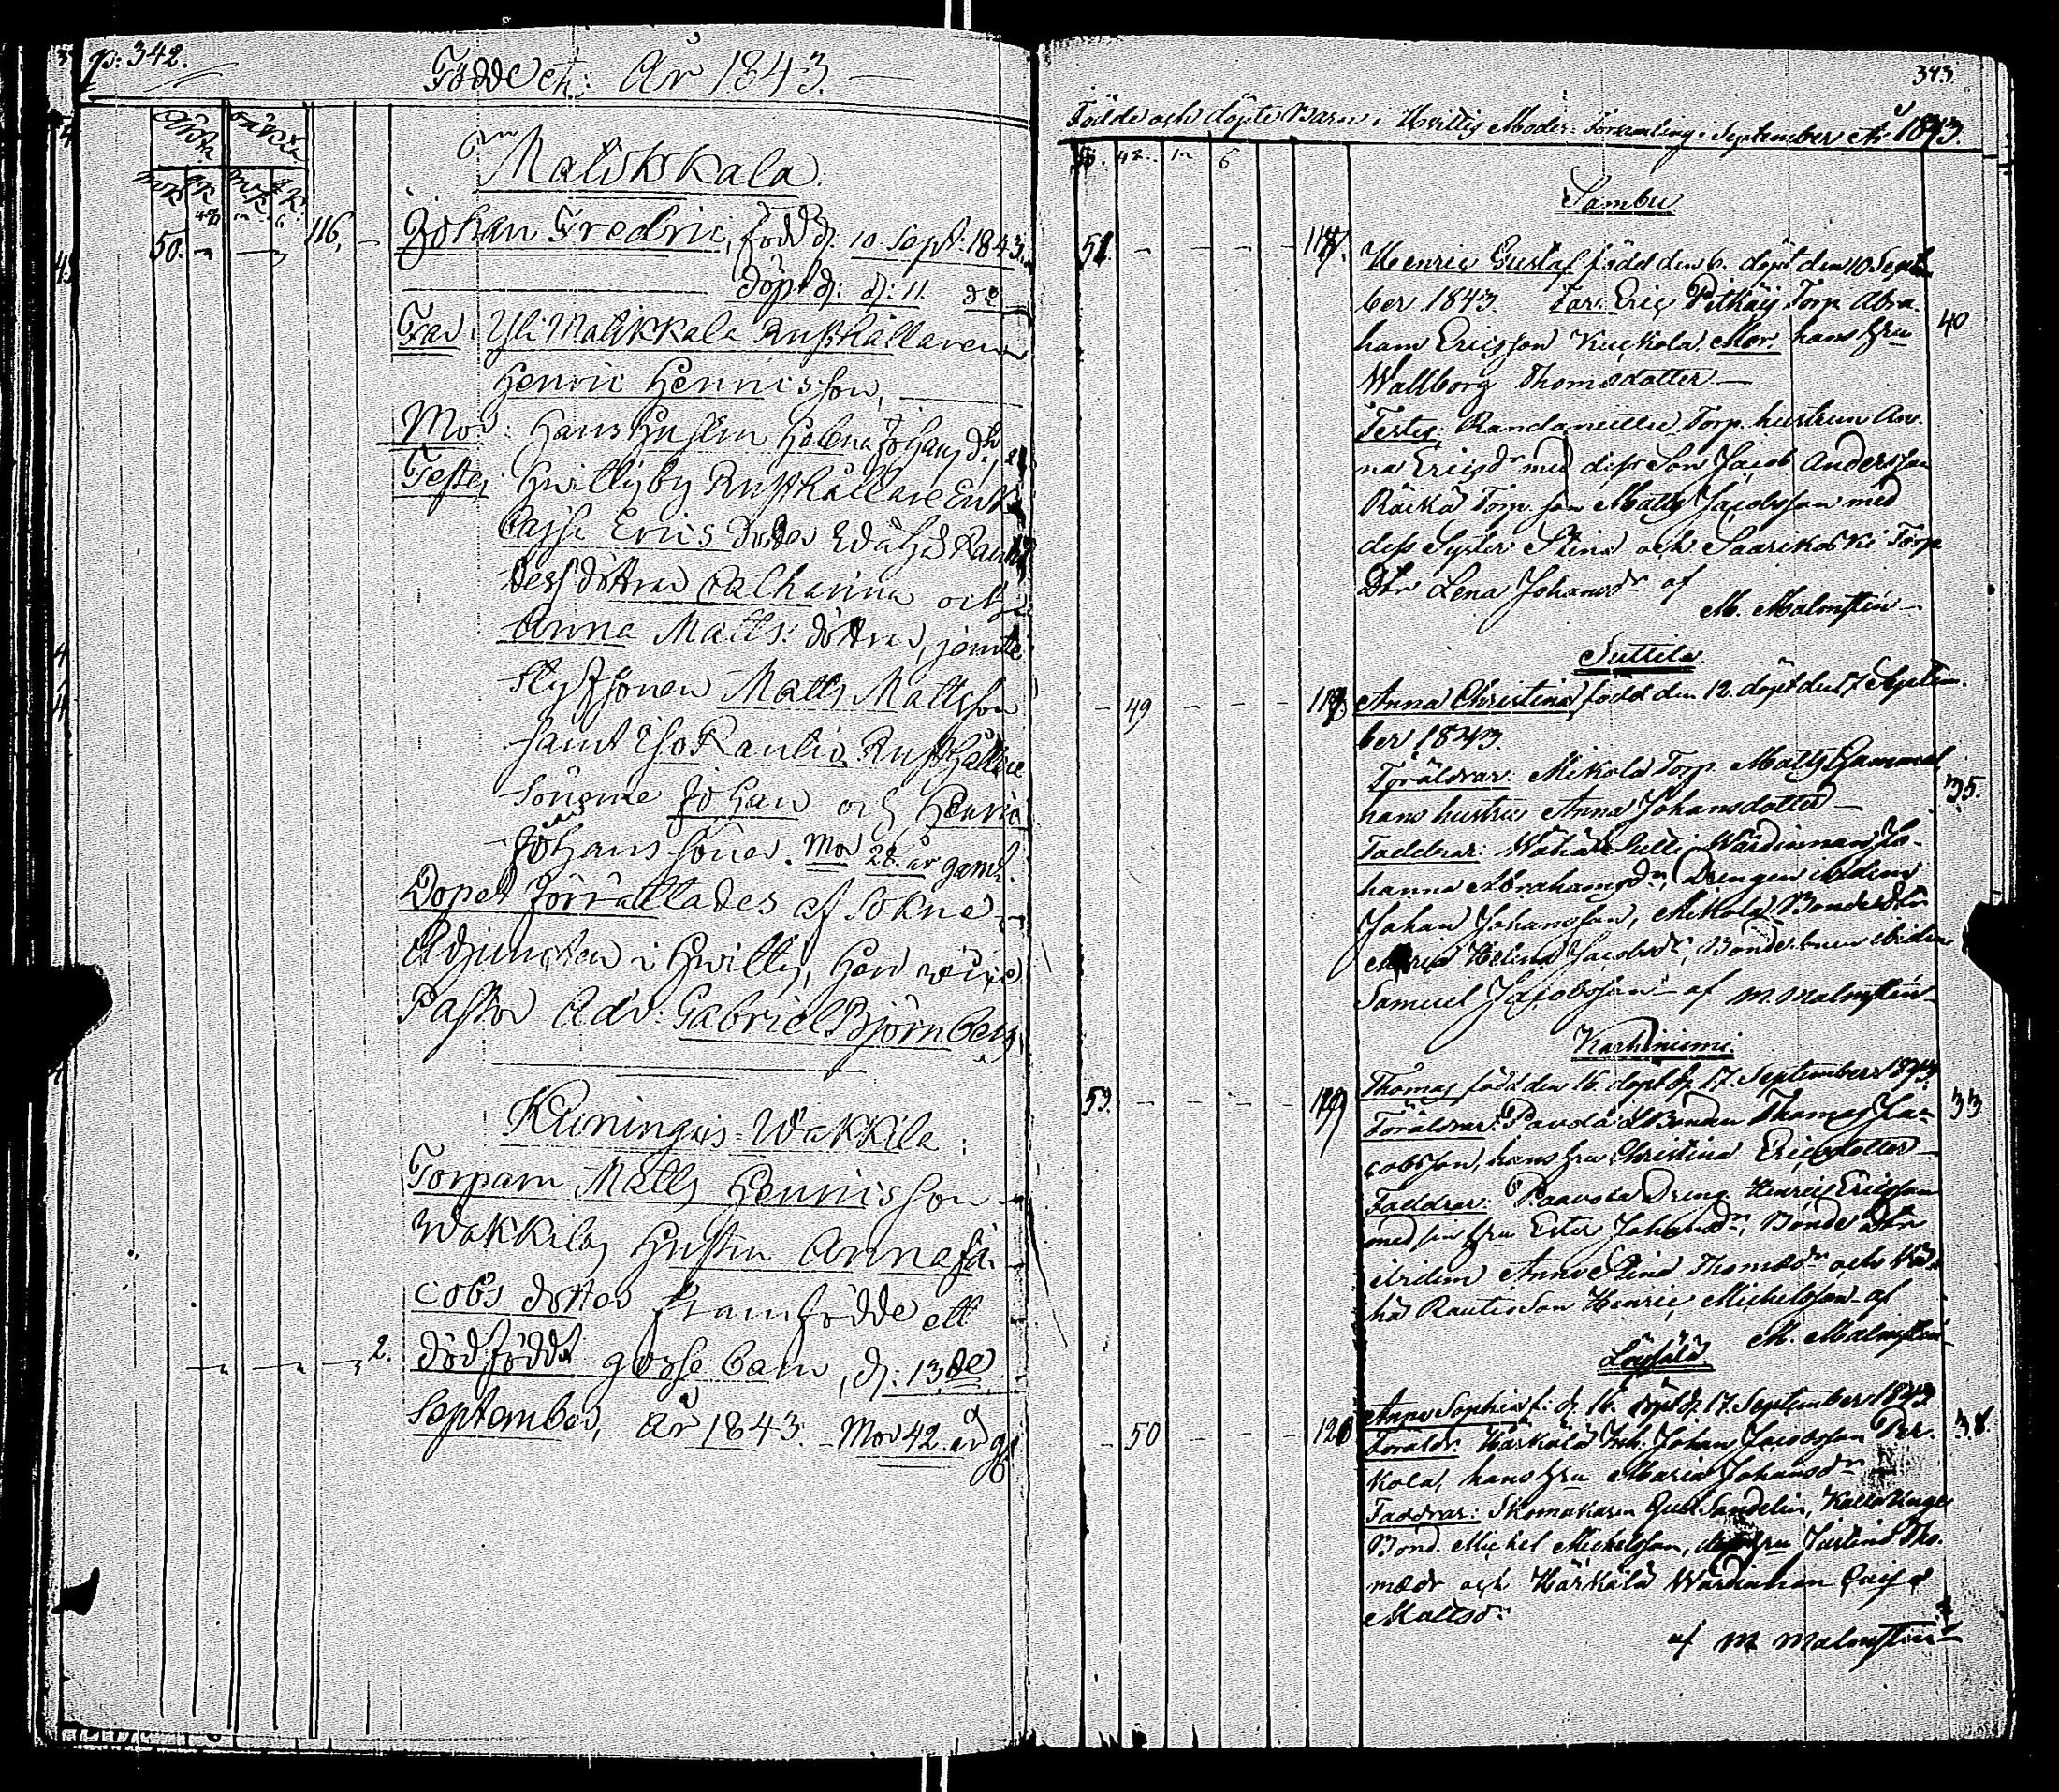 p: 342.
Födde etc: År 1843.
Äkta
Oäkta
mk qk mk qk
48 " 6
Mallikkala
50. " " 116,
Johan Fredric, född d: 10 Sept: 1843.
döpt d: d: 11. do
Far: Yli Mallikkala Rusthållaren
Henric Henricsson,
Mor: Hans Hustru Helena Johansdr,
Testes: Hvittisby Rusthållare Enk
Cajsa Erics dotter
dess döttrar Catharina och
Anna Matts: döttrar, jämte
styfsonen Matts Mattsson
samt Iso Rautio Rusthållare
sönerne Johan och Henric
Johans söner. Mor 28. år gaml.
Dopet förrättades af Sokne-
Adjuncten i Hvittis, Herr vice
Pastor Adv: Gabriel Björnberg,
Kuningus=Wakkila:
Torparn Matts Henricsson
Wakkilas Hustru Anna Ja-
cobs dotter framfödde ett
2. dödfödt gossebarn, d: 13de
September, År 1843. - Mor 42. år g:
343
Födde och döpte Barn i Hvittis Moder=Församling i September År 1843.
42. 12 6
Sambu
51. 117.
Henric Gustaf född den 6. döpt den 10 Septem
ber 1843. Far: Eric Pitkäij Torp. Abra-
40
ham Ericsson Kuckola, Mor hans hru
Wallborg Thomsdotter
Testes: Torp. hustrun An-
na Ericsdr med dess Son Jacob Andersson
Räikä Torp. son Matts Jacobsson med
dess Syster Stina och Saarikoski Torp.
Dtr Lena Johansdr af
M. Malmsten
Suttila
49 118
Anna Christina född den 12. döpt den 17 Septem-
ber 1843.
Föräldrar: Mikola Torp. Matts Gammal
35.
hans hustru Anna Johansdotter
Faddrar: Wähä Sulli Wärdinnan Jo-
hanna Abrahamsdr, Drengen ibidem
Johan Johansson, Mikola Bondedtr
Maria Helena Jacobsdr, Bondesonen ibidem
Samuel Jacobsson af M. Malmsten
Karhiniemi
53. 119
Thomas född den 16. döpt d. 17. September 1843.
33
Föräldrar: Pavola Bonden Thomas Ja-
cobsson, hans hru Christina Ericsdotter
Faddrar: Paavola Dreng Henric Ericsson
med sin hru Ester Johansdr, Bonde Dtr
ibidem Anna Stina Thomædr och Wä-
hä Rautio Son Henric Michelsson af
M. Malmsten
50 120
Anna Sophia f: d. 16. döpt d. 17. September 1843
38.
Föräldr: Härkälä Inh. Johan Jacobsson Per-
kola, hans hru Maria Johansdr
Faddrar: Skomakaren Gust Sandelin,
Bond. Michel Michelsson, dess hru Justina Tho-
mædr och Härkälä Wärdinnan Caisa
Mattsdr
af M Malmsten